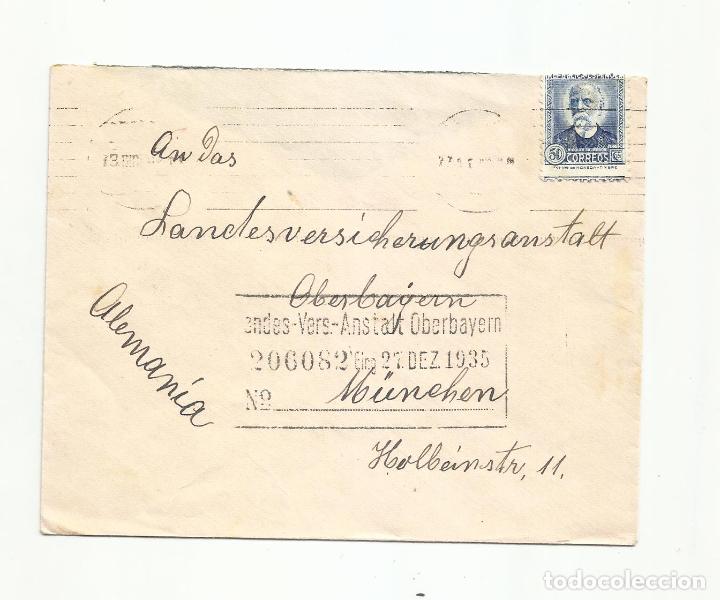 REPUBLICA ESPAÑOLA
50 CORREOS Cts
An das
Landesversicherungsanstalt
Oberbayern
Alemania
andes-Vers.-Anstalt Oberbayern
206082 Eing 27. DEZ. 1935
München
No
Holbeinstr, 11.
todocoleccion